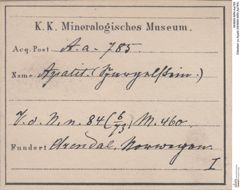 K. K. Mineralogisches Museum.
Acq. Post A. a. 785
Name Apatit. (Spargelstein.)
V. d. N. n. 84 (6/73) M. 460.
Fundort Arendal, Norwegen.
I